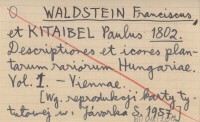 WALDSTEIN Franciscus,
et KITAIBEL Paulus 1802.
Descriptiones et icones plan-
tarum rariorum Hungariae.
Vol. 1. — Viennae.
[Wg. reprodukcji karty ty-
tułowej w. Jávorka S. 1957